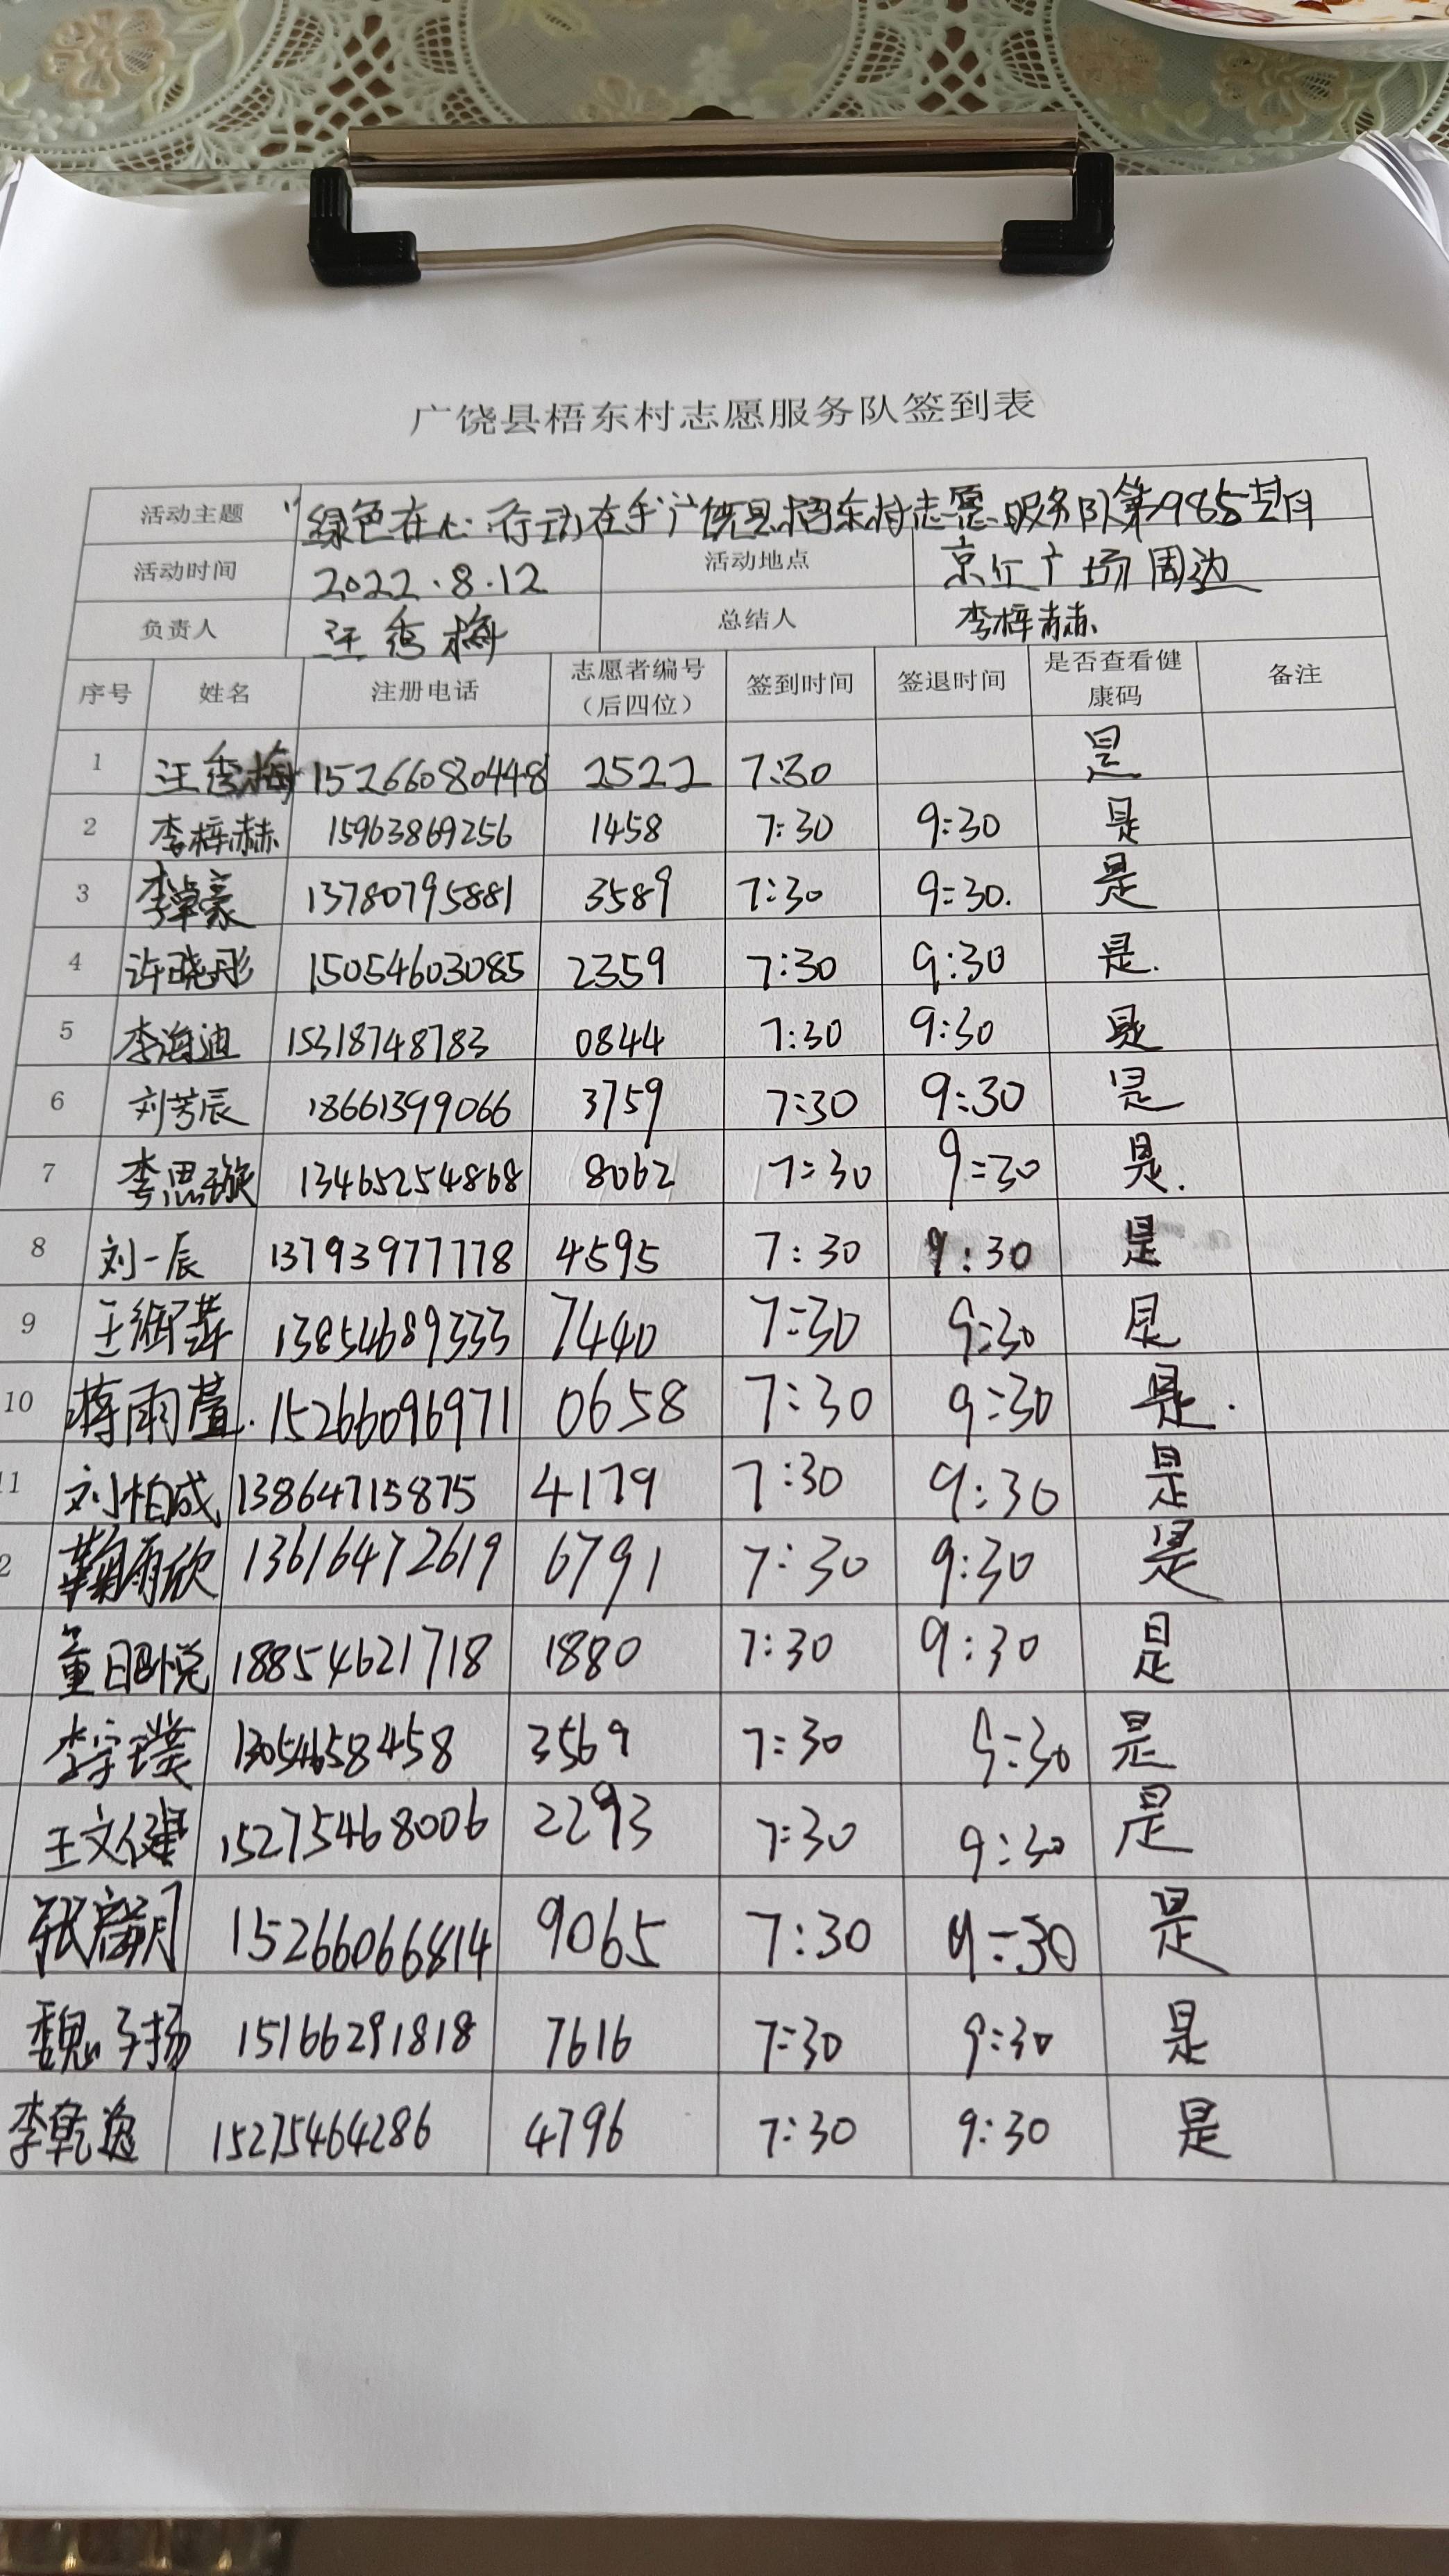 广饶县梧东村志愿服务队签到表
活动主题 "绿色在心 行动在手"广饶县梧东村志愿服务队第985期
活动时间 2022.8.12 活动地点 京仁广场周边
负责人 汪秀梅 总结人 李梓赫
序号 姓名 注册电话 志愿者编号（后四位） 签到时间 签退时间 是否查看健康码 备注
1 汪秀梅 15266080448 2522 7:30 是
2 李梓赫 15963869256 1458 7:30 9:30 是
3 李卓豪 13780795881 3589 7:30 9:30. 是
4 许晓彤 15054603085 2359 7:30 9:30 是.
5 李海迪 15318748783 0844 7:30 9:30 是
6 刘芳辰 18661399066 3759 7:30 9:30 是
7 李思璇 13465254868 8062 7:30 9:30 是.
8 刘一辰 13793977778 4595 7:30 9:30 是
9 王 13854689333 7440 7:30 9:30 是
10 蒋雨萱. 15266096971 0658 7:30 9:30 是.
11 刘怡成 13864715875 4179 7:30 9:30 是
2 鞠雨欣 13616472619 6791 7:30 9:30 是
董 悦 18854621718 1880 7:30 9:30 是
李宇璞 13054658458 3569 7:30 9:30 是
王文健 15275468006 2293 7:30 9:30 是
张启明 15266066814 9065 7:30 9:30 是
魏子扬 15166291818 7616 7:30 9:30 是
李乾逸 15275464286 4796 7:30 9:30 是